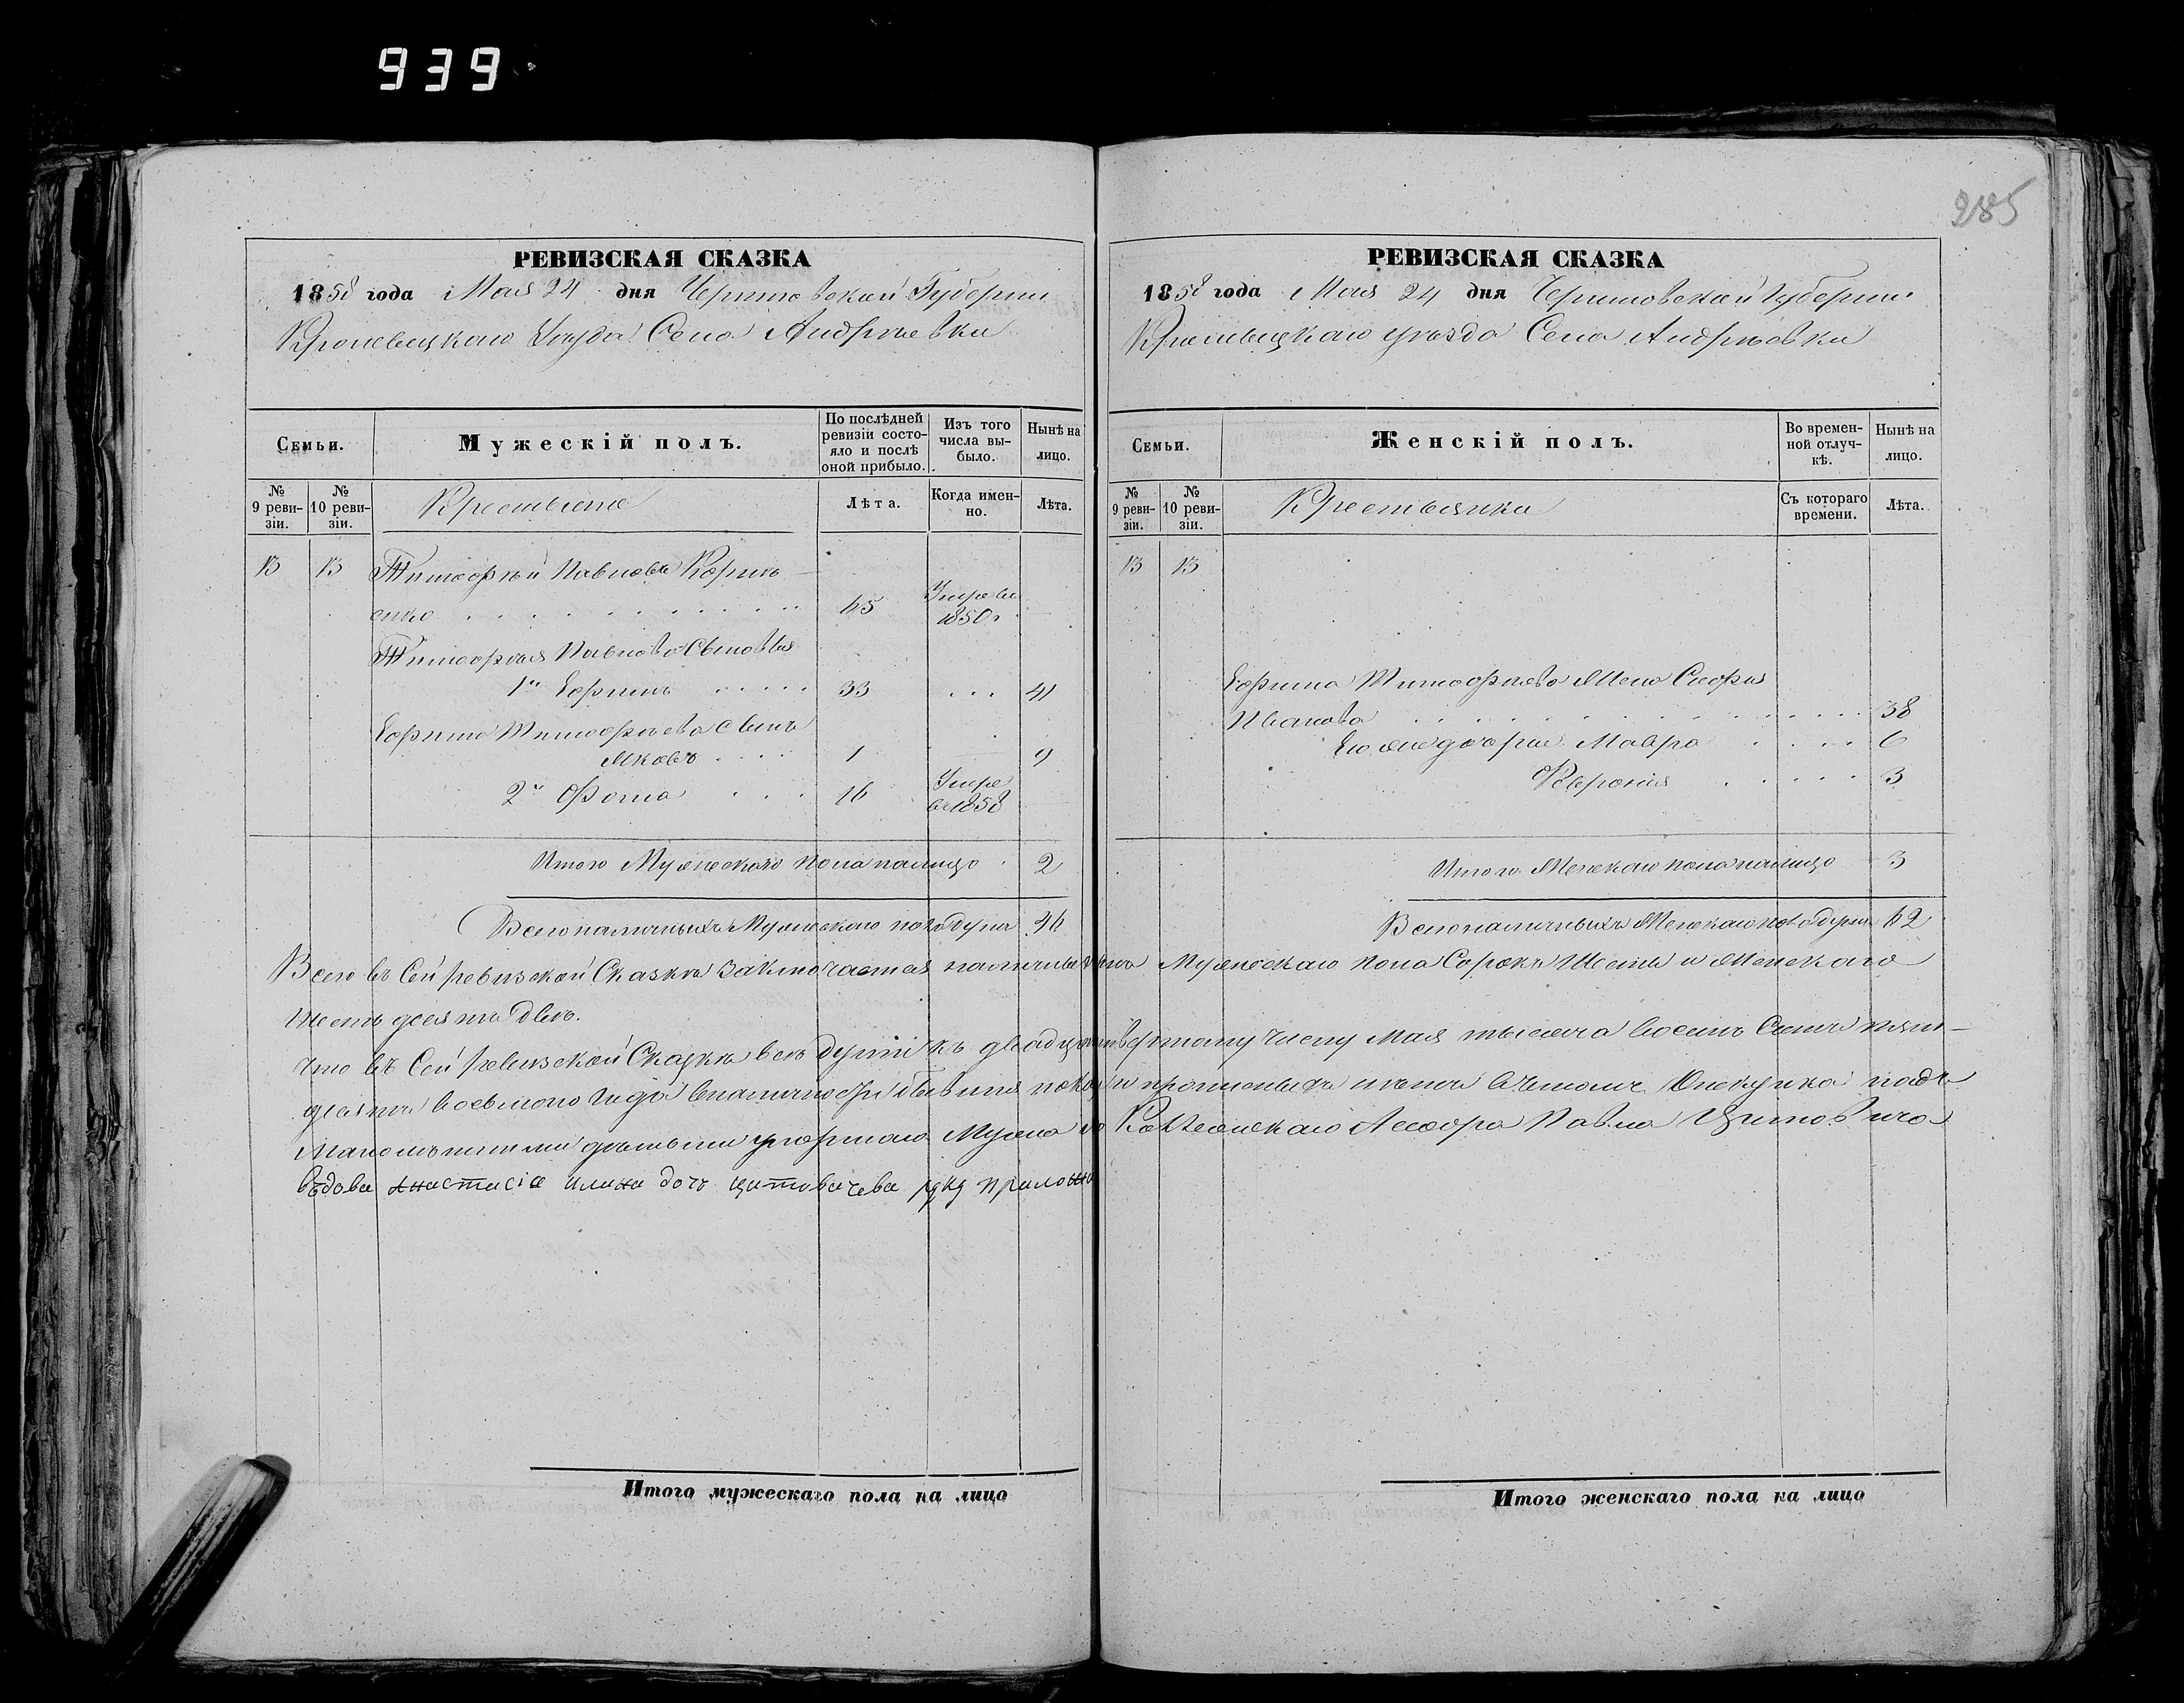 939
285
РЕВИЗСКАЯ СКАЗКА
1858 года Мая 24 дня Черниговской Губернии
Кролевецкаго Уѣзда Села Андрѣевки
Семьи.
Мужескій полъ.
По послѣдней ревизіи состояло и послѣ оной прибыло.
Изъ того числа выбыло.
Нынѣ на лицо.
№ 9 ревизіи.
№ 10 ревизіи.
Крестьяне
Лѣта.
Когда именно.
Лѣта.
13 13 Тимофѣй Павловъ
енко 65 Умре въ 1850 г
Тимофѣя Павлова Сыновья
1й Ефимъ 33 41
Ефима Тимофѣева сынъ
Яковъ 1 9
2й Фома 16 Умре въ 1858
Итого Мужескаго пола налицо 2
Всего наличныхъ Мужескаго пола душъ 46
РЕВИЗСКАЯ СКАЗКА
1858 года Мая 24 дня Черниговской Губернии
Кролевецкаго уѣзда Села Андрѣевки
Семьи.
Женскій полъ.
Во временной отлучкѣ.
Нынѣ на лицо.
№ 9 ревизіи.
№ 10 ревизіи.
Крестьянки
Съ котораго времени.
Лѣта.
13 13
Ефима Тимофѣева Жена
Иванова 38
Его же дочери Мавра 6
Феврония 3
Итого Женскаго пола налицо 3
Всего наличныхъ Женскаго пола душъ 62
Всего въ Сей ревизской Сказкѣ заключается наличныхъ душъ Мужескаго пола Сорокъ Шесть и Женскаго
Шестьдесятъ двѣ.
Что въ Сей Ревизской Сказкѣ всѣ души къ двадцать четвертому числу Мая тысяча восемь Сотъ пять-
десятъ восьмого года въ наличности и пропоны въ томъ подъ
дѣтьми умершаго Мужа Коллежскаго Асесора Павла Цитовича
въдова Анастасіа дочъ цитовичева руку приложи
Итого мужескаго пола на лицо
Итого женскаго пола на лицо